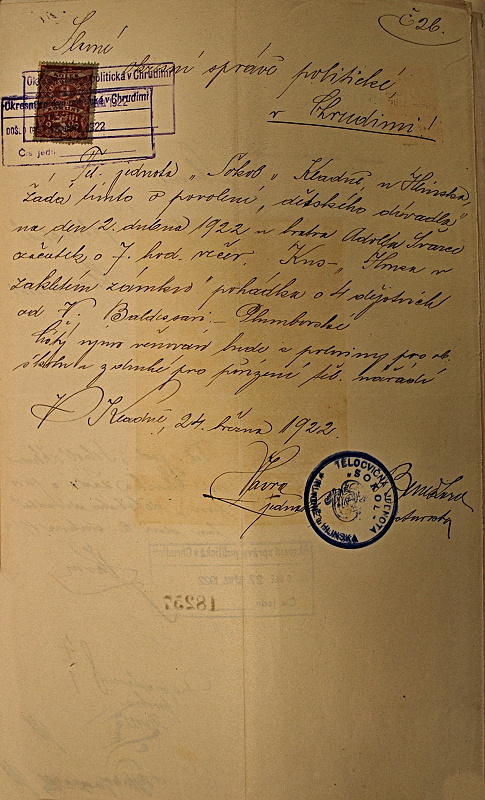 Č 26.
Slavné
okresní správě politické,
v Chrudimi!
Okresní správa politická v Chrudimi
Okresní politická v Chrudimi
došlo 1922
Čís. jedn.
Těl. jednota „Sokol" Kladně, u Hlinska
žádá tímto o povolení „dětského divadla"
na den 2. dubna 1922 u bratra Adolfa Švarce
začátek o 7. hod. večer. Kus – „Honza v
zakletém zámku" pohádka o 4 dějstvích
od V. Baldessari – Plumlovské
Čistý výnos věnován bude z poloviny pro ob.
školu a z druhé pro pořízení těl. nářadí
V Kladně, 24. března 1922.
Vávra
TĚLOCVIČNÁ JEDNOTA
SOKOL
Okresní správa politická v Chrudimi
27 1922
Čís. jedn. 18257